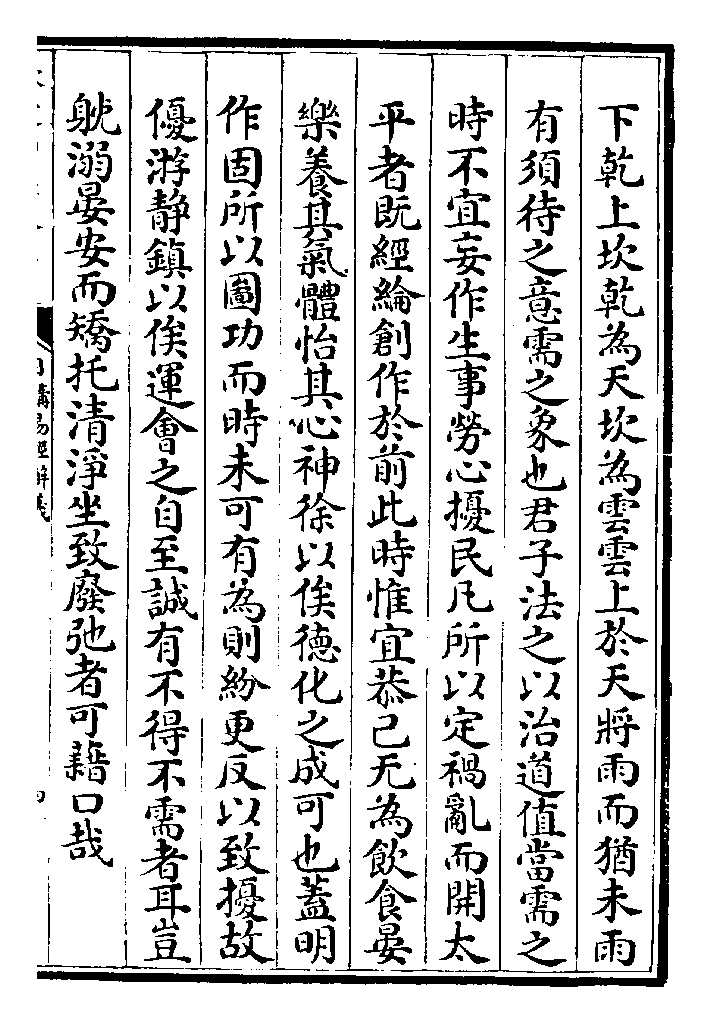 下乾上坎乾為天坎為雲雲上於天將雨而猶未雨
有須待之意需之象也君子法之以治道值當需之
時不宜妄作生事勞心擾民凡所以定禍亂而開太
平者既經綸創作於前此時惟宜恭己无為飲食晏
樂養其氣體怡其心神徐以俟德化之成可也蓋明
作固所以圖功而時未可有為則紛更反以致擾故
優游靜鎮以俟運會之自至誠有不得不需者耳豈
躭溺晏安而矯托清淨坐致廢弛者可藉口哉
日講易經解義